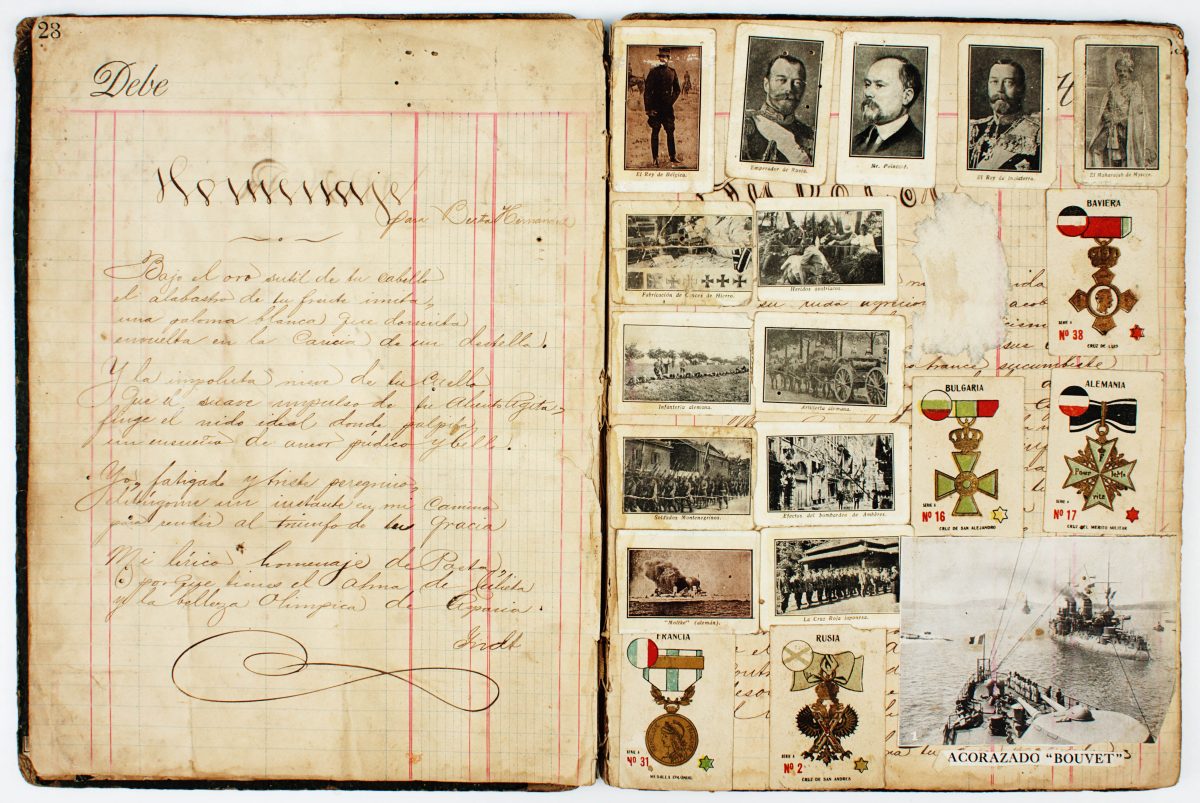 23
Debe
Homenaje
para Berta
Bajo el oro sutil de tu cabello
el alabastro de tu frente imita,
una paloma blanca que dormita
envuelta en la de un destello.
Y la impoluta nieve de tu cuello
que el suave impulso de tu aliento agita,
finge el nido ideal donde palpita
un ensueño de amor púdico y bello.
Yo, fatigado y triste peregrino,
un instante en mi camino
para rendir al triunfo de tu Gracia
Mi lírico homenaje de Poeta,
por que tienes el alma de Julieta
y la belleza Olímpica de Aspasia.
El Rey de Bélgica.
Emperador de Rusia.
Mr. Poincaré.
El Rey de Inglaterra.
El Maharajah de Mysore.
Fabricación de Cruces de Hierro.
Heridos austriacos.
BAVIERA
SERIE A
Nº 38
CRUZ DE LUIS
su rudo
Infantería alemana.
Artillería alemana.
sucumbiste
BULGARIA
SERIE A
Nº 16
CRUZ DE SAN ALEJANDRO
ALEMANIA
Pour le Mé rite
SERIE A
Nº 17
CRUZ DEL MERITO MILITAR
Soldados Montenegrinos.
Efectos del bombardeo de Ambéres.
"Moltke" (alemán).
La Cruz Roja japonesa.
FRANCIA
SERIE A
Nº 31
MEDALLA COLONIAL
RUSIA
SERIE A
Nº 2
CRUZ DE SAN ANDRES
1
ACORAZADO "BOUVET"